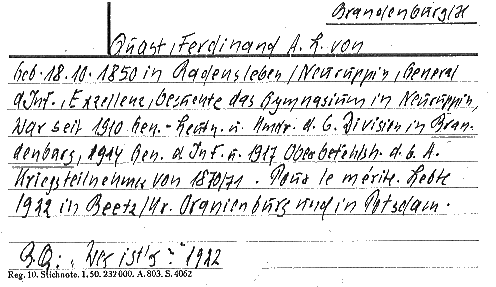 Brandenburg/H
Quast, Ferdinand A. L. von
Geb. 18.10.1850 in Radensleben/Neuruppin, General
d Inf., Exzellenz, besuchte das Gymnasium in Neuruppin,
war seit 1910 Gen.-Leutn. u. Kmdr. d. 6. Division in Bran-
denburg, 1914 Gen. d Inf. u. 1917 Oberbefehlsh. d. 6. A.
Kriegsteilnehmer von 1870/71. Pour le mérite. Lebte
1922 in Beetz/Kr. Oranienburg und in Potsdam.
BQ: "Wer ist's" 1922
Reg. 10. Stichnote. 1. 50. 232000. A. 803. S. 4062